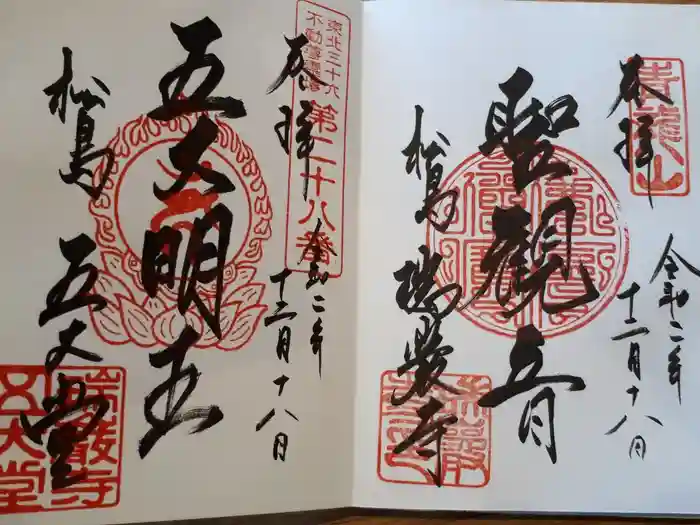 奉拝
青龍山
聖観音
松島 瑞巌寺
令和二年
十二月十八日
瑞巌寺
奉拝
東北三十六
不動尊霊場
第二十八番
五大明王
松島 五大堂
令和二年
十二月十八日
瑞巌寺
五大堂